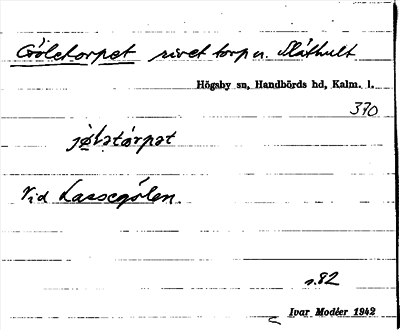 Göletorpet rivet torp u. Slåthult
Högsby sn, Handbörds hd, Kalm. l.
370
jö̀lətår̀pət
Vid Lassegölen.
s. 82
Ivar Modéer 1942